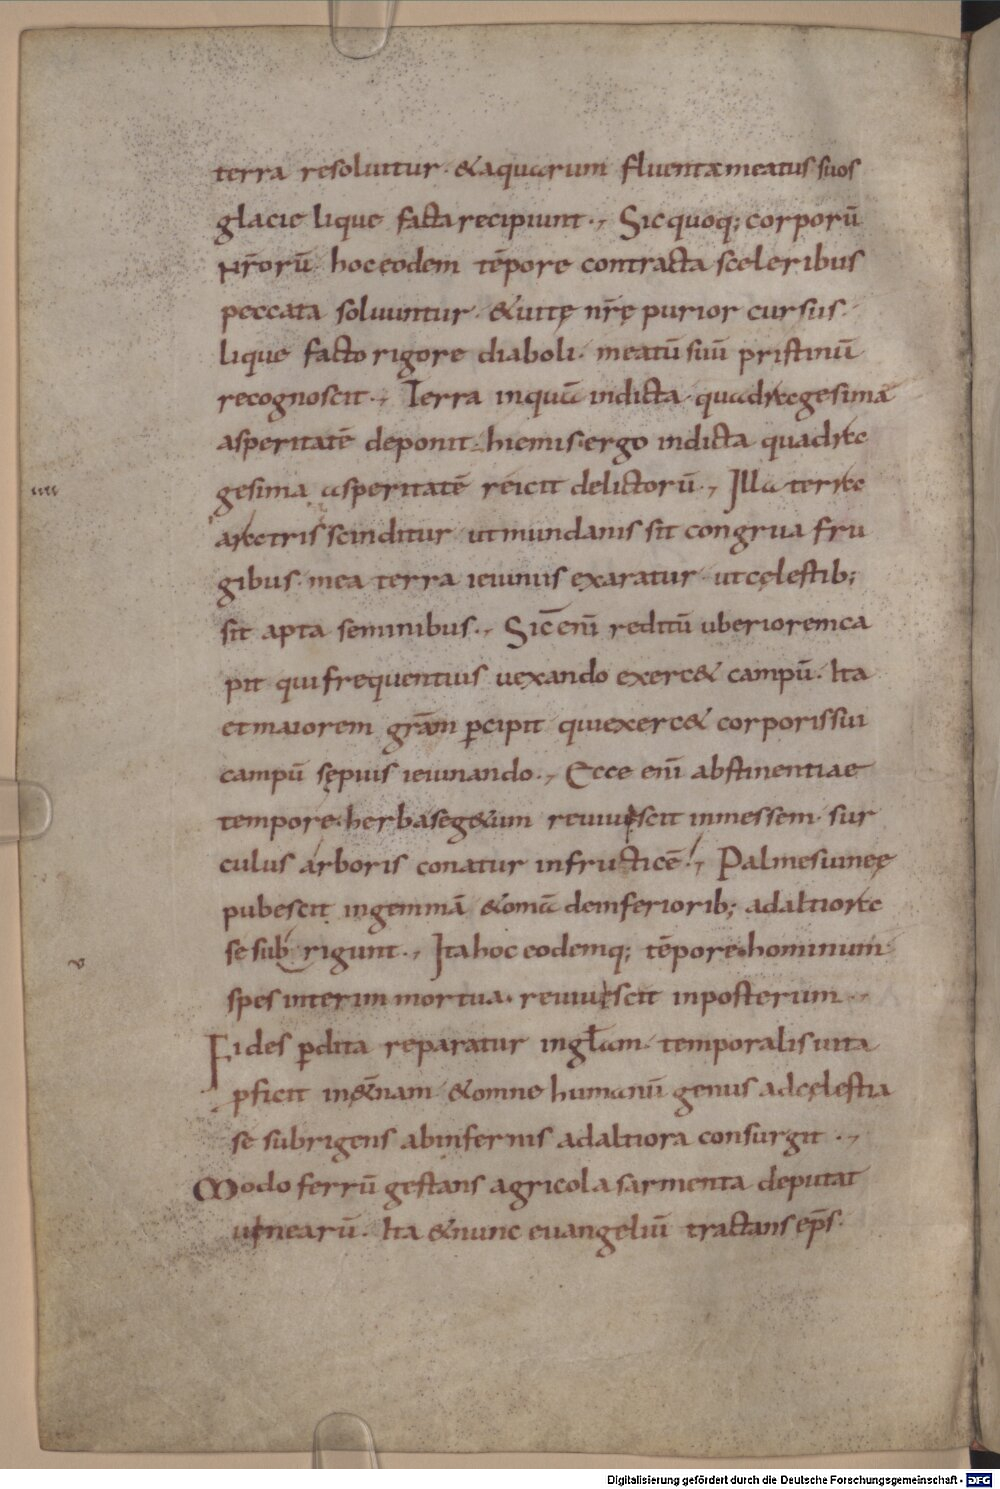 terra resoluitur· & aquarum fluenta meatus suos
glacie lique facta recipiunt·, Sic quoq; corporū
nr̄orū hoc eodem tēpore contracta sceleribus
peccata soluuntur· & uitę nr̄ę purior cursus·
lique facto rigore diaboli· meatū suū pristinū
recognoscit·, Terra inquā indicta quadragesima
asperitatē deponit hiemis· ergo indicta quadra
gesima asperitatē reicit delictorū·, Illa terra
aratris scinditur ut mundanis sit congrua fru
gibus· mea terra ieiuniis exaratur· ut cęlestib;
sit apta seminibus·, Sic enī reditū uberiorem ca
pit qui frequentius uexando exerc& campū· Ita
et maiorem grām p̄cipit qui exerc& corporis sui
campū sępius ieiunando·, Ecce enī abstinentiae
tempore· herba seg&um reuiuescit in messem· sur
culus arboris conatur in fruticē!, Palmes uineę
pubescit in gemmā & omā de inferiorib; ad altiora
se sub rigunt·, Ita hoc eodemq; tēpore· hominum
spes interim mortua· reuiuescit in posterum·,
Fides p̄dita reparatur in gl̄am· temporalis uita
pficit in &̄nam· & omne humanū genus ad cęlestia
se subrigens ab infernis ad altiora consurgit·,
Modo ferrū gestans agricola sarmenta deputat
uinearū· Ita & nunc euangeliū tractans ep̄s·
Digitalisierung gefördert durch die Deutsche Forschungsgemeinschaft - DFG